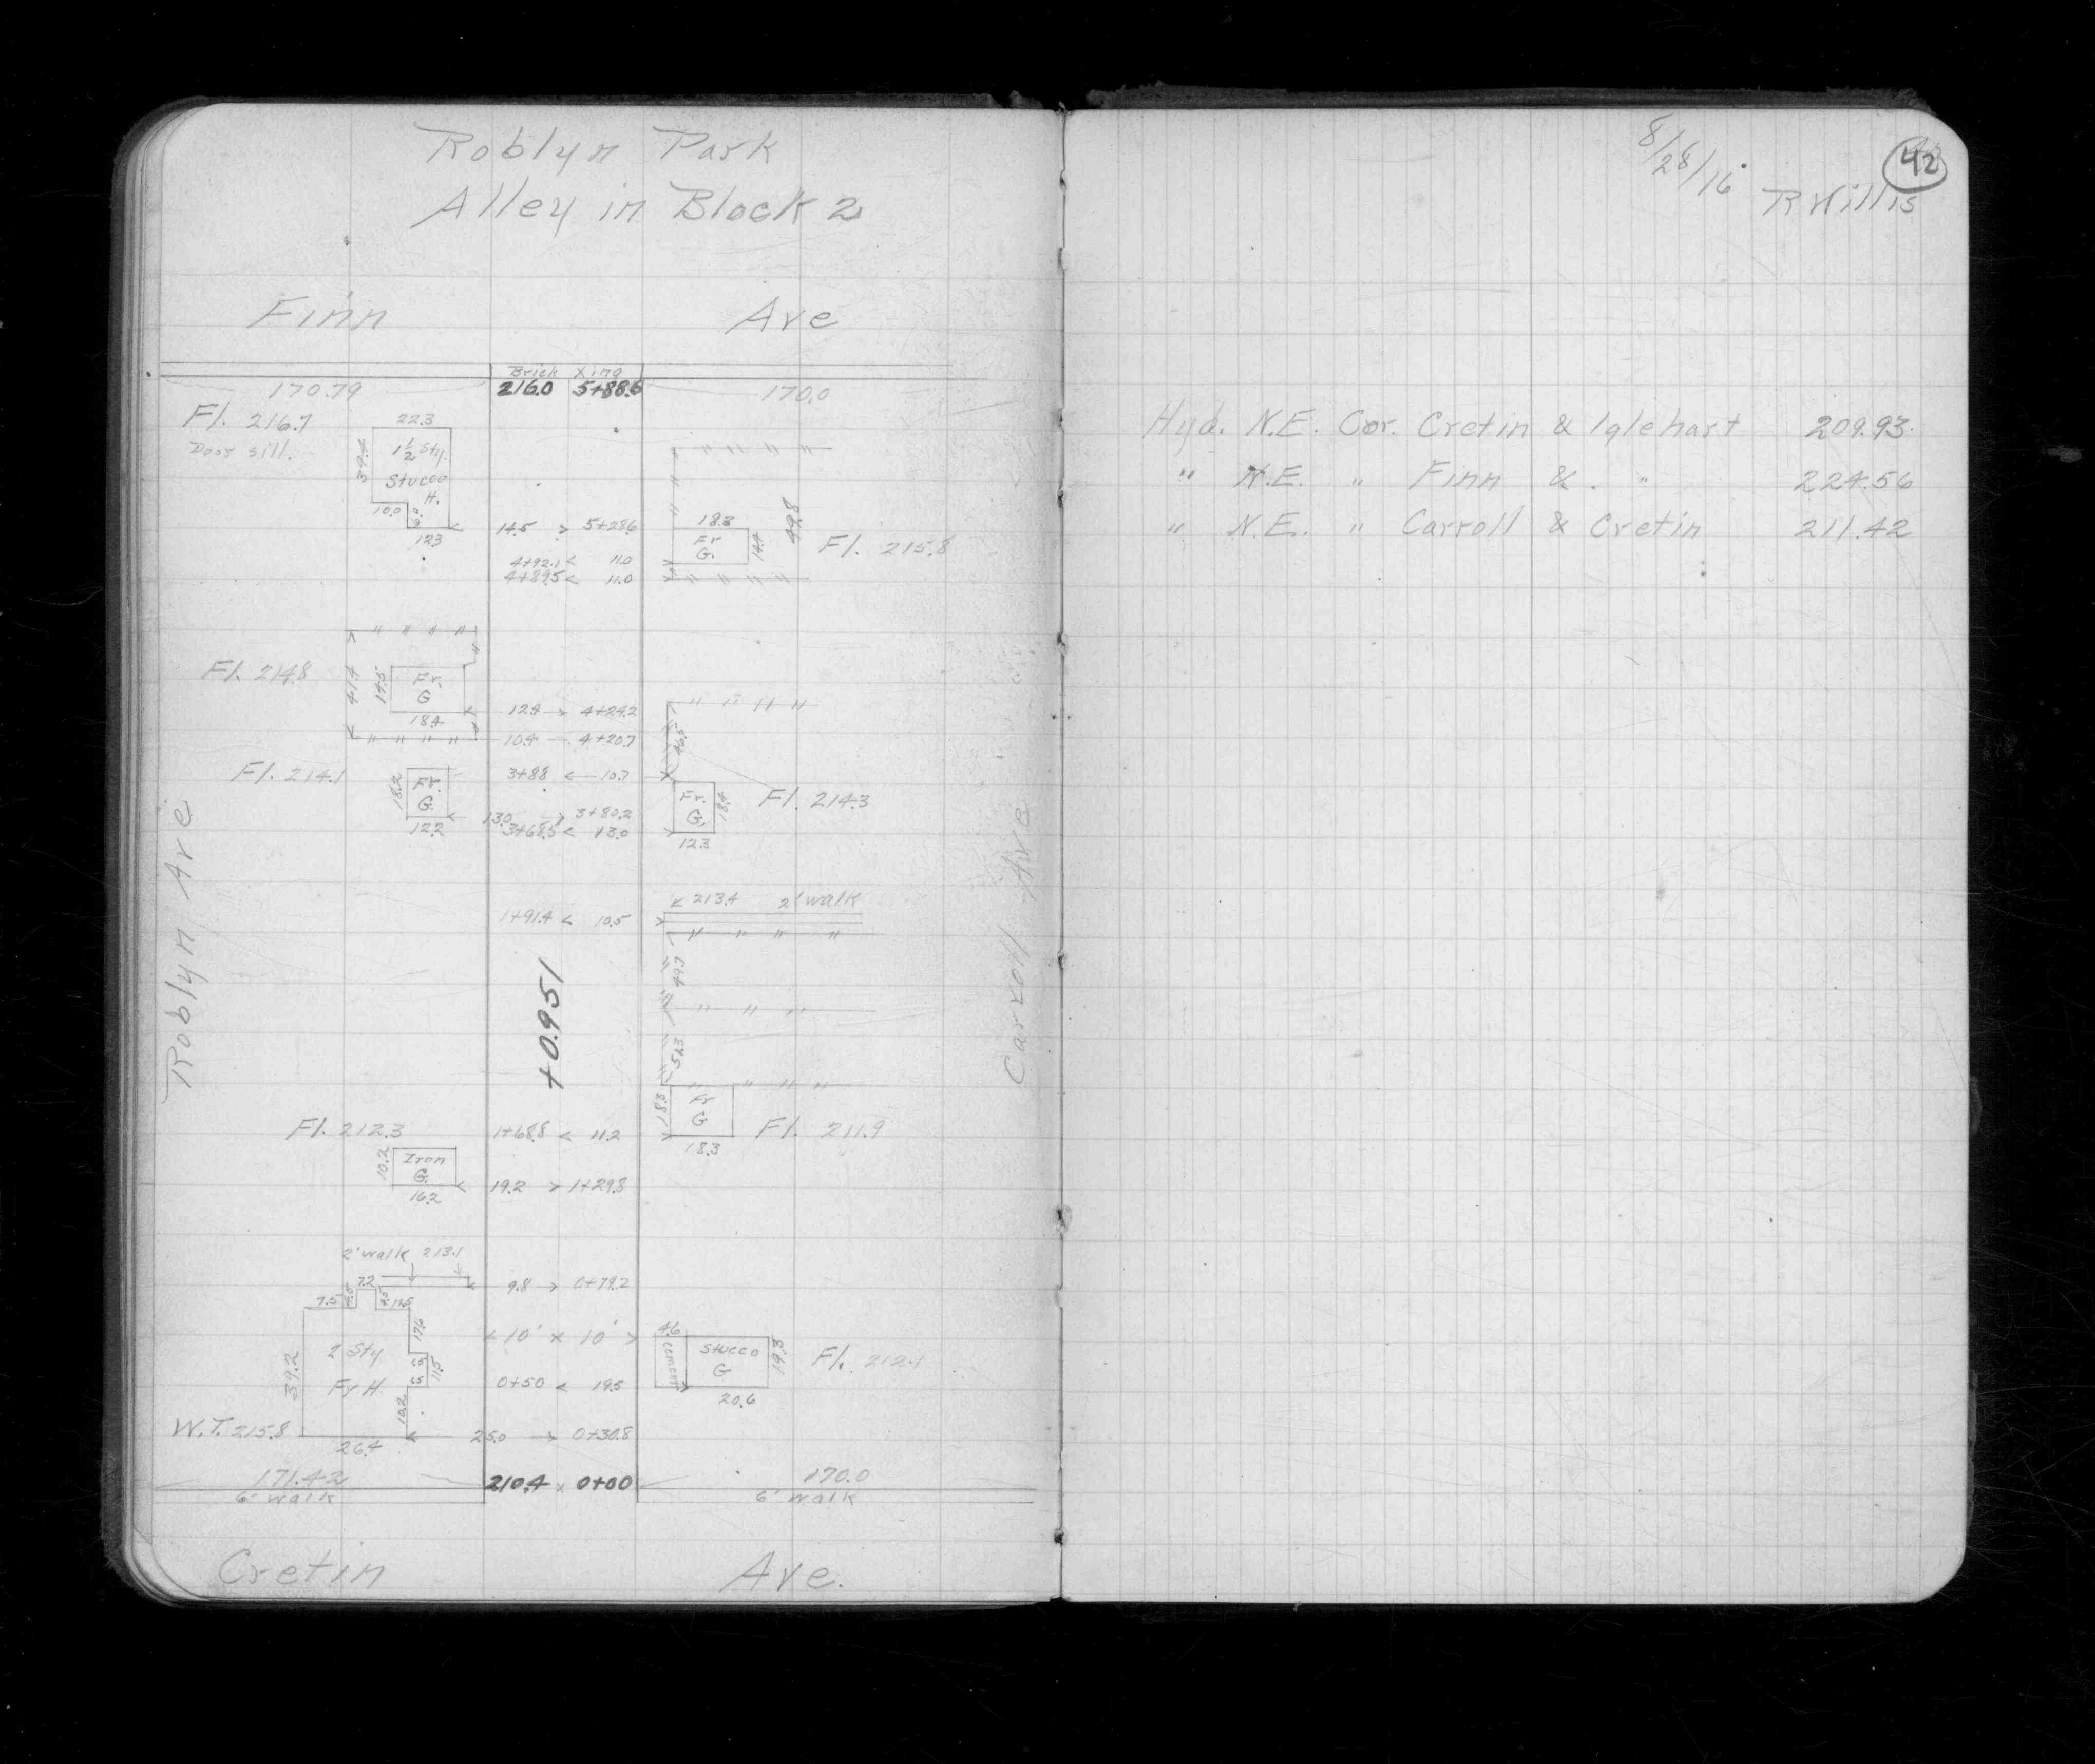 Roblyn Park
Alley in Block 2
Finn Ave
Brick Xing
170.79 216.0 5+88.6 170.0
Fl. 216.7
Door sill.
22.3
39.4
1½ Sty.
Stucco
H.
10.0
6.0
12.3
14.5 > 5+28.6
18.3
Fr
G.
14.4
49.8
Fl. 215.8
4+92.1 < 11.0
4+89.5 < 11.0
Fl. 214.8
41.4
14.5
Fr.
G
18.4
12.4 > 4+24.2
10.4 4+20.7
46.5
Fl. 214.1
18.2
Fr.
G.
12.2
3+88 < 10.7
13.0 > 3+80.2
3+68.5 < 13.0
Fr.
G.
18.4
12.3
Fl. 214.3
Roblyn Ave
Carroll Ave
213.4 2' walk
1+91.4 < 10.5
49.7
+0.951
51.3
Fl. 212.3
1+68.8 < 11.2
18.3
Fr
G
18.3
Fl. 211.9
10.2
Iron
G.
16.2
19.2 > 1+29.8
2' walk 213.1
7.2
7.5
11.5
9.8 > 0+79.2
17.6
< 10' x 10' >
4.6
cement
Stucco
G
19.3
20.6
Fl. 212.1
39.2
2 Sty
Fr H.
2.5
2.5
11.5
10.2
0+50 < 19.5
W.T. 215.8
26.4
25.0 > 0+30.8
171.42 210.4 x 0+00 170.0
6' walk 6' walk
Cretin Ave.
8/28/16
42
R Willis
Hyd. N.E. Cor. Cretin & Iglehart 209.93
" N.E. " Finn & " 224.56
" N.E. " Carroll & Cretin 211.42